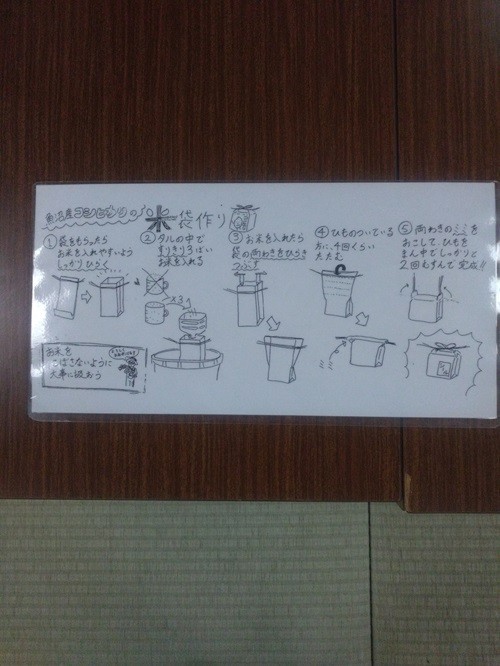 魚沼産コシヒカリの米袋作り
① 袋をもらったら
お米を入れやすいよう
しっかりひらく
② タルの中で
すりきり3ばい
お米を入れる
×3
③ お米を入れたら
袋の両わきをひらき
つぶす
④ ひものついている
方に、4回くらい
たたむ
⑤ 両わきのミミを
おこして、ひもを
まん中でしっかりと
2回むすんで完成!!
お米を
こぼさないように
大事に扱おう